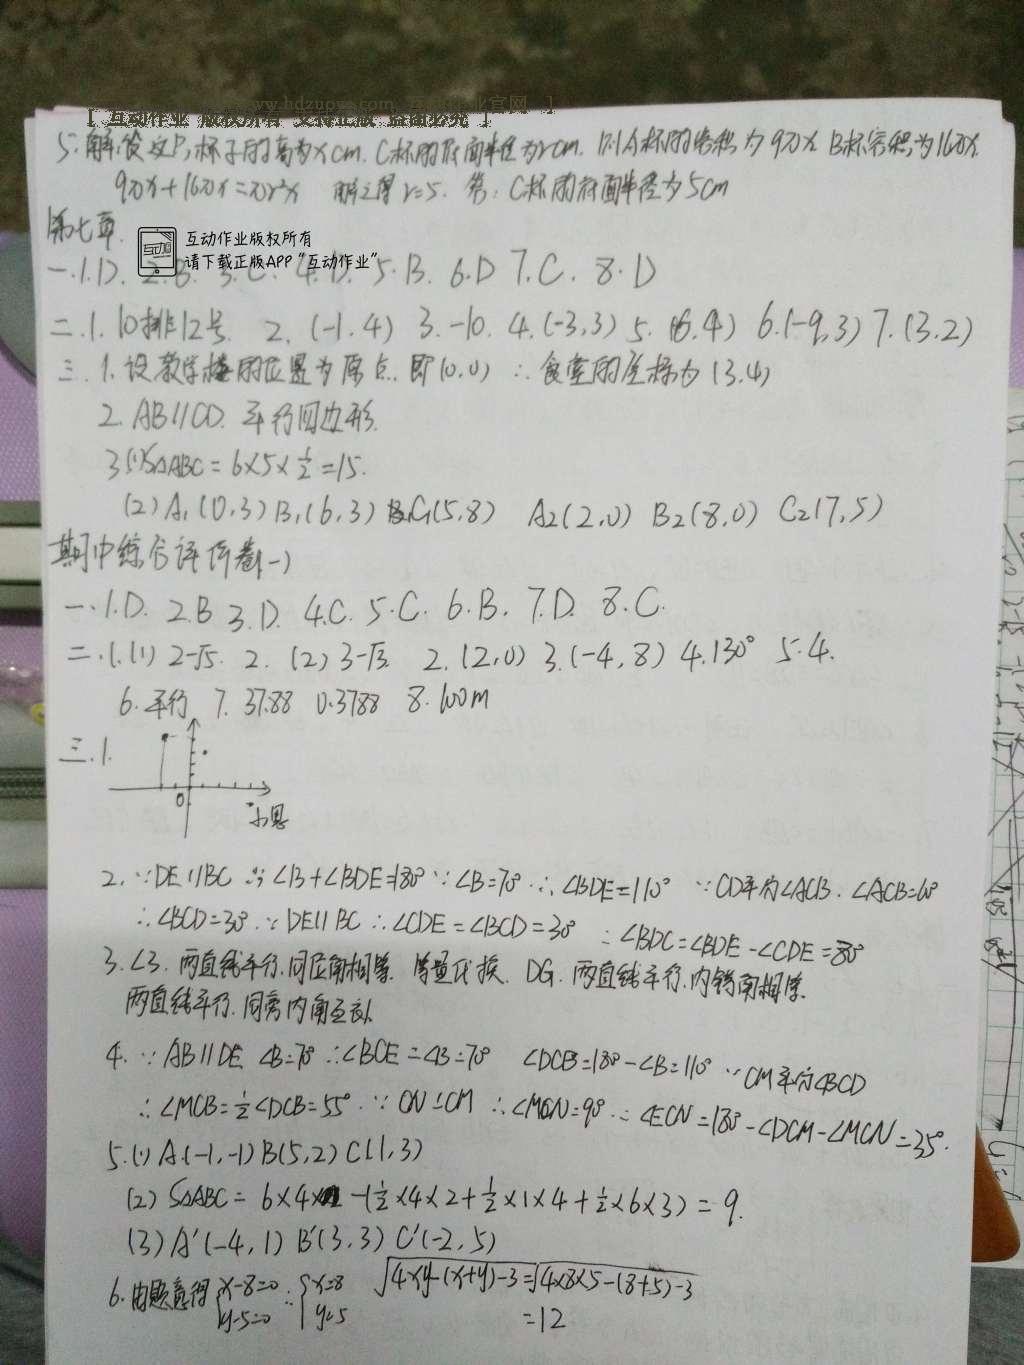 www.hdzuowe.com 互动作业官网 ]
[ 互动作业 版权所有 支持正版 盗版必究 ]
5.解:设 杯子的高为xcm. C杯的底面半径为rcm. 则A杯的容积为90x B杯容积为160x.
90x+160x=10r²x 解之得r=5. 答:C杯的底面半径为5cm
第七章.
互动作业版权所有
请下载正版APP“互动作业”
一.1.D. 2.B. 3.C. 4.D. 5.B. 6.D 7.C. 8.D
二.1.10排12号. 2.(-1.4) 3.-10. 4.(-3,3) 5.(6.4) 6.(-9,3) 7.(3.2)
三.1.设教学楼的位置为原点.即(0.0) ∴食堂的坐标为(3.4)
2.AB//CD. 平行四边形.
3.(1)S△ABC=6×5×½=15.
(2)A₁(0,3) B₁(6,3) C₁(5,8) A2(2,0) B2(8,0) C2(7,5)
期中综合评价卷(一)
一.1.D. 2.B 3.D. 4.C. 5.C. 6.B. 7.D. 8.C.
二.1.(1) 2-√5. 2. (2) 3-√3 2.(2,0) 3.(-4,8) 4.130° 5.4.
6.平行 7. 37.88 0.3788 8.100m
三.1.
0
小恩
2.∵DE//BC ∴∠B+∠BDE=180°∵∠B=70°∴∠BDE=110° ∵CD平分∠ACB. ∠ACB=60°
∴∠BCD=30°.∵DE//BC ∴∠CDE=∠BCD=30° ∴∠BDC=∠BDE-∠CDE=80°
3.∠3.两直线平行.同位角相等. 等量代换. DG. 两直线平行.内错角相等.
两直线平行.同旁内角互补.
4.∵AB//DE ∠B=70°∴∠BCE=∠B=70° ∠DCB=180°-∠B=110° ∵CM平分∠BCD
∴∠MCB=½∠DCB=55°.∵CN⊥CM ∴∠MCN=90°∴∠ECN=180°-∠DCM-∠MCN=35°.
5.(1)A(-1,-1) B(5,2) C(1,3)
(2) S△ABC=6×4-(½×4×2+½×1×4+½×6×3)=9.
(3) A′(-4,1) B′(3,3) C′(-2,5)
6.由题意得{x-8=0 y-5=0 ∴{x=8 y=5 √4xy-(x+y)-3=√4×8×5-(8+5)-3
=12